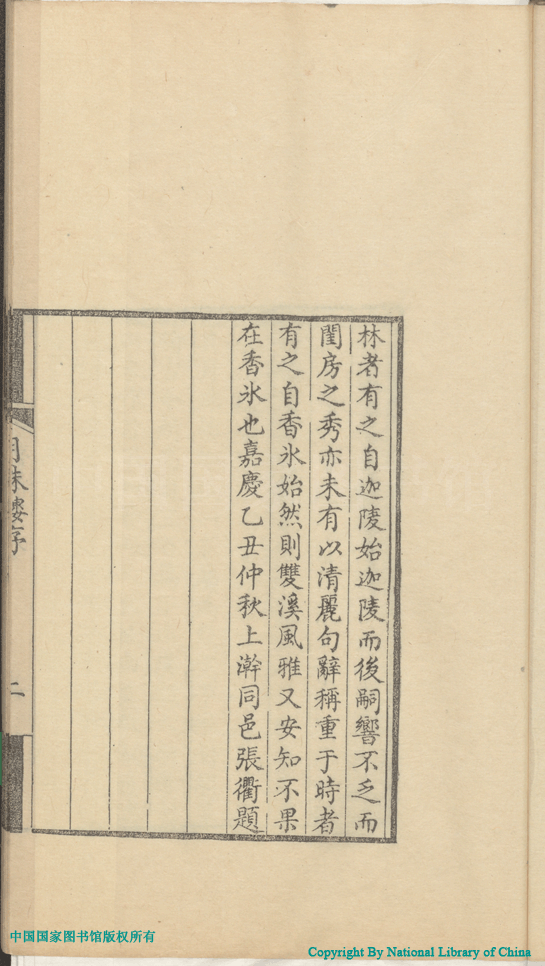 林者有之自迦陵始迦陵而後嗣響不乏而
閨房之秀亦未有以清麗句辭稱重于時者
有之自香氷始然則雙溪風雅又安知不果
在香氷也嘉慶乙丑仲秋上澣同邑張衢題
序
二
中国国家图书馆版权所有
Copyright By National Library of China